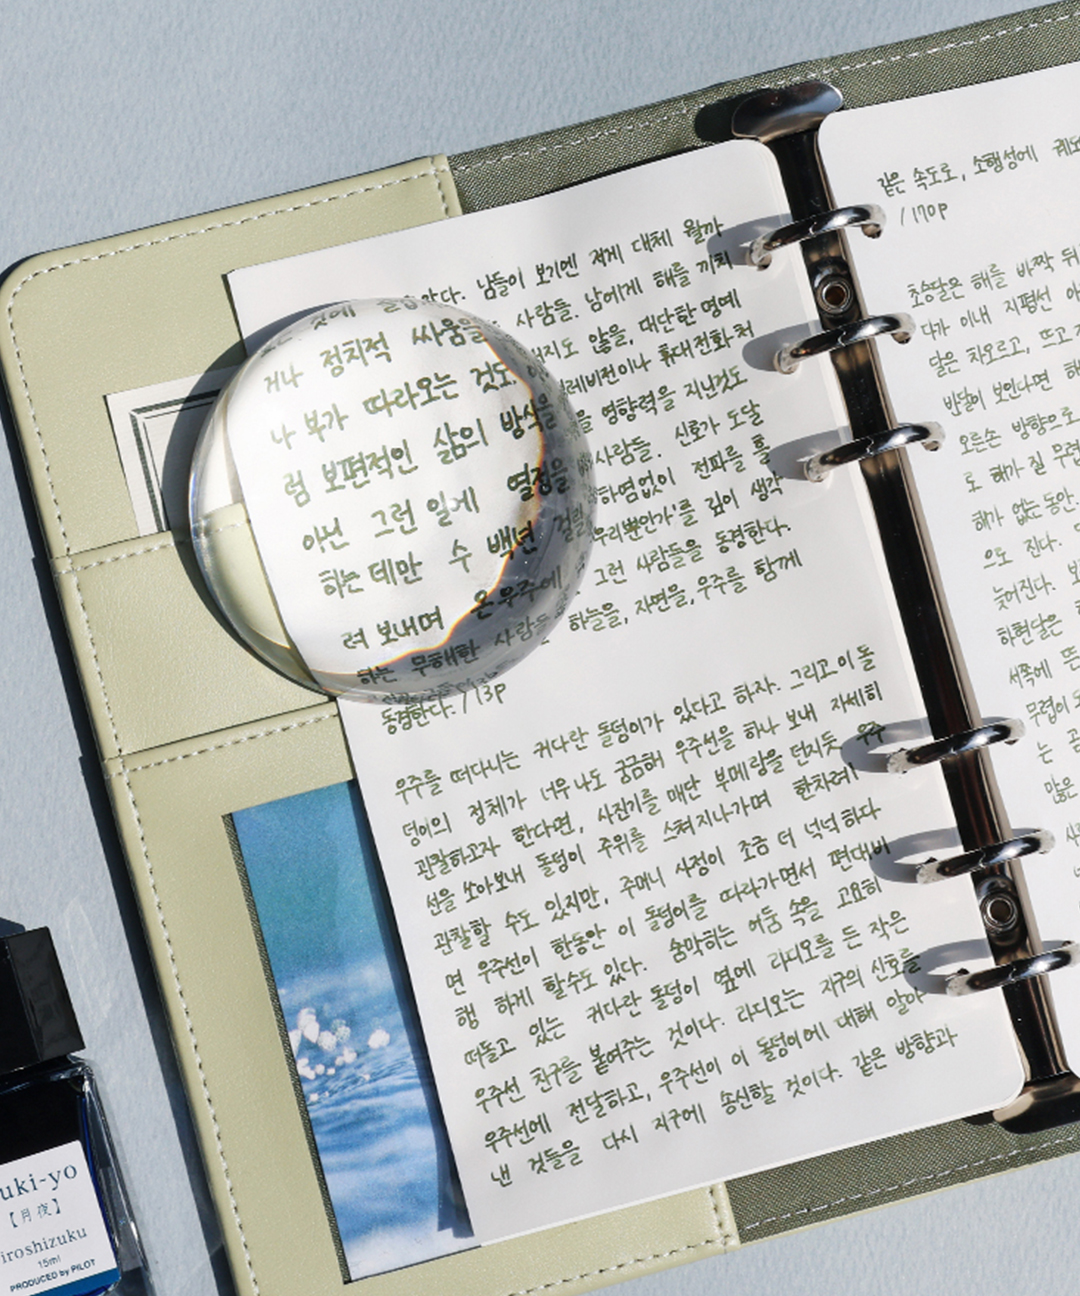 았다. 남들이 보기엔 저게 대체 뭘까
것에 사람들. 남에게 해를 끼치
거나 정치적 싸움을 내지도 않을, 대단한 명예
나 부가 따라오는 것도 텔레비전이나 휴대전화처
럼 보편적인 삶의 방식을 을 영향력을 지닌것도
아닌 그런 일에 열정을 사람들. 신호가 도달
하는데만 수 백년 걸릴 하염없이 전파를 흘
려 보내며 온 우주에 '우리뿐인가'를 깊이 생각
하는 무해한 사람들 그런 사람들을 동경한다.
하늘을, 자연을, 우주를 함께
동경한다. /13p
우주를 떠다니는 커다란 돌덩이가 있다고 하자. 그리고 이 돌
덩이의 정체가 너무나도 궁금해 우주선을 하나 보내 자세히
관찰하고자 한다면, 사진기를 매단 부메랑을 던지듯 우주
선을 쏘아보내 돌덩이 주위를 스쳐지나가며 한차례
관찰할 수도 있지만, 주머니 사정이 조금 더 넉넉하다
면 우주선이 한동안 이 돌덩이를 따라가면서 편대비
행 하게 할수도 있다. 숨막히는 어둠 속을 고요히
떠돌고 있는 커다란 돌덩이 옆에 라디오를 든 작은
우주선 친구를 붙여주는 것이다. 라디오는 지구의 신호를
우주선에 전달하고, 우주선이 이 돌덩이에 대해 알아
낸 것들을 다시 지구에 송신할 것이다. 같은 방향과
같은 속도로, 소행성에 궤도
/170p
초승달은 해를 바짝 뒤
다가 이내 지평선 아
달은 차오르고, 뜨고
반달이 보인다면 해
오른손 방향으로
로 해가 질 무렵
해가 없는 동안
으로 진다.
늦어진다. 보
하현달은
서쪽에 뜬
무렵이 되
는
많은
uki-yo
【月夜】
iroshizuku
15ml
PRODUCED by PILOT